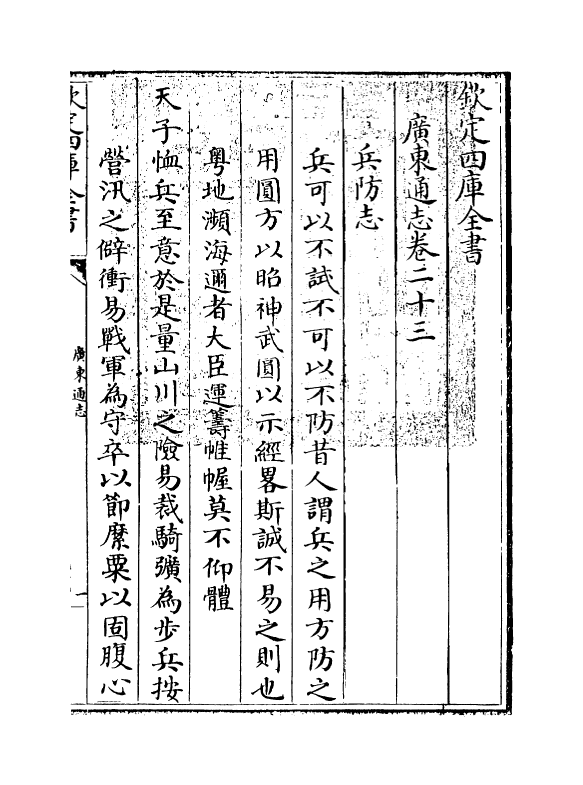 欽定四庫全書
廣東通志卷二十三
兵防志
兵可以不試不可以不防昔人謂兵之用方防之
用圓方以昭神武圓以示經畧斯誠不易之則也
粤地濒海邇者大臣運籌帷幄莫不仰體
天子恤兵至意於是量山川之險易裁騎彍為步兵按
營汛之僻衝易戰軍為守卒以節縻粟以固腹心
欽定四庫全書
廣東通志